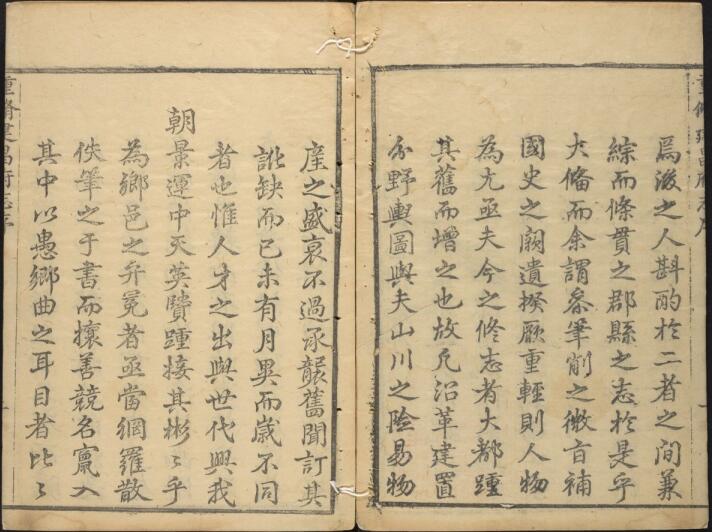 重脩建昌府志序
焉後之人斟酌於二者之間兼
綜而條貫之郡縣之志於是乎
大備而余謂叅筆削之微旨補
國史之闕遺揆厥重輕則人物
為尤亟夫今之修志者大都踵
其舊而增之也故凡沿革建置
分野輿圖與夫山川之險易物
產之盛衰不過承襲舊聞訂其
訛缺而已未有月異而歲不同
者也惟人才之出與世代興我
朝景運中天英賢踵接其彬〻乎
為鄉邑之弁冕者亟當網羅散
佚筆之于書而攘善競名竄入
其中以愚鄉曲之耳目者比〻
重脩建昌府志序